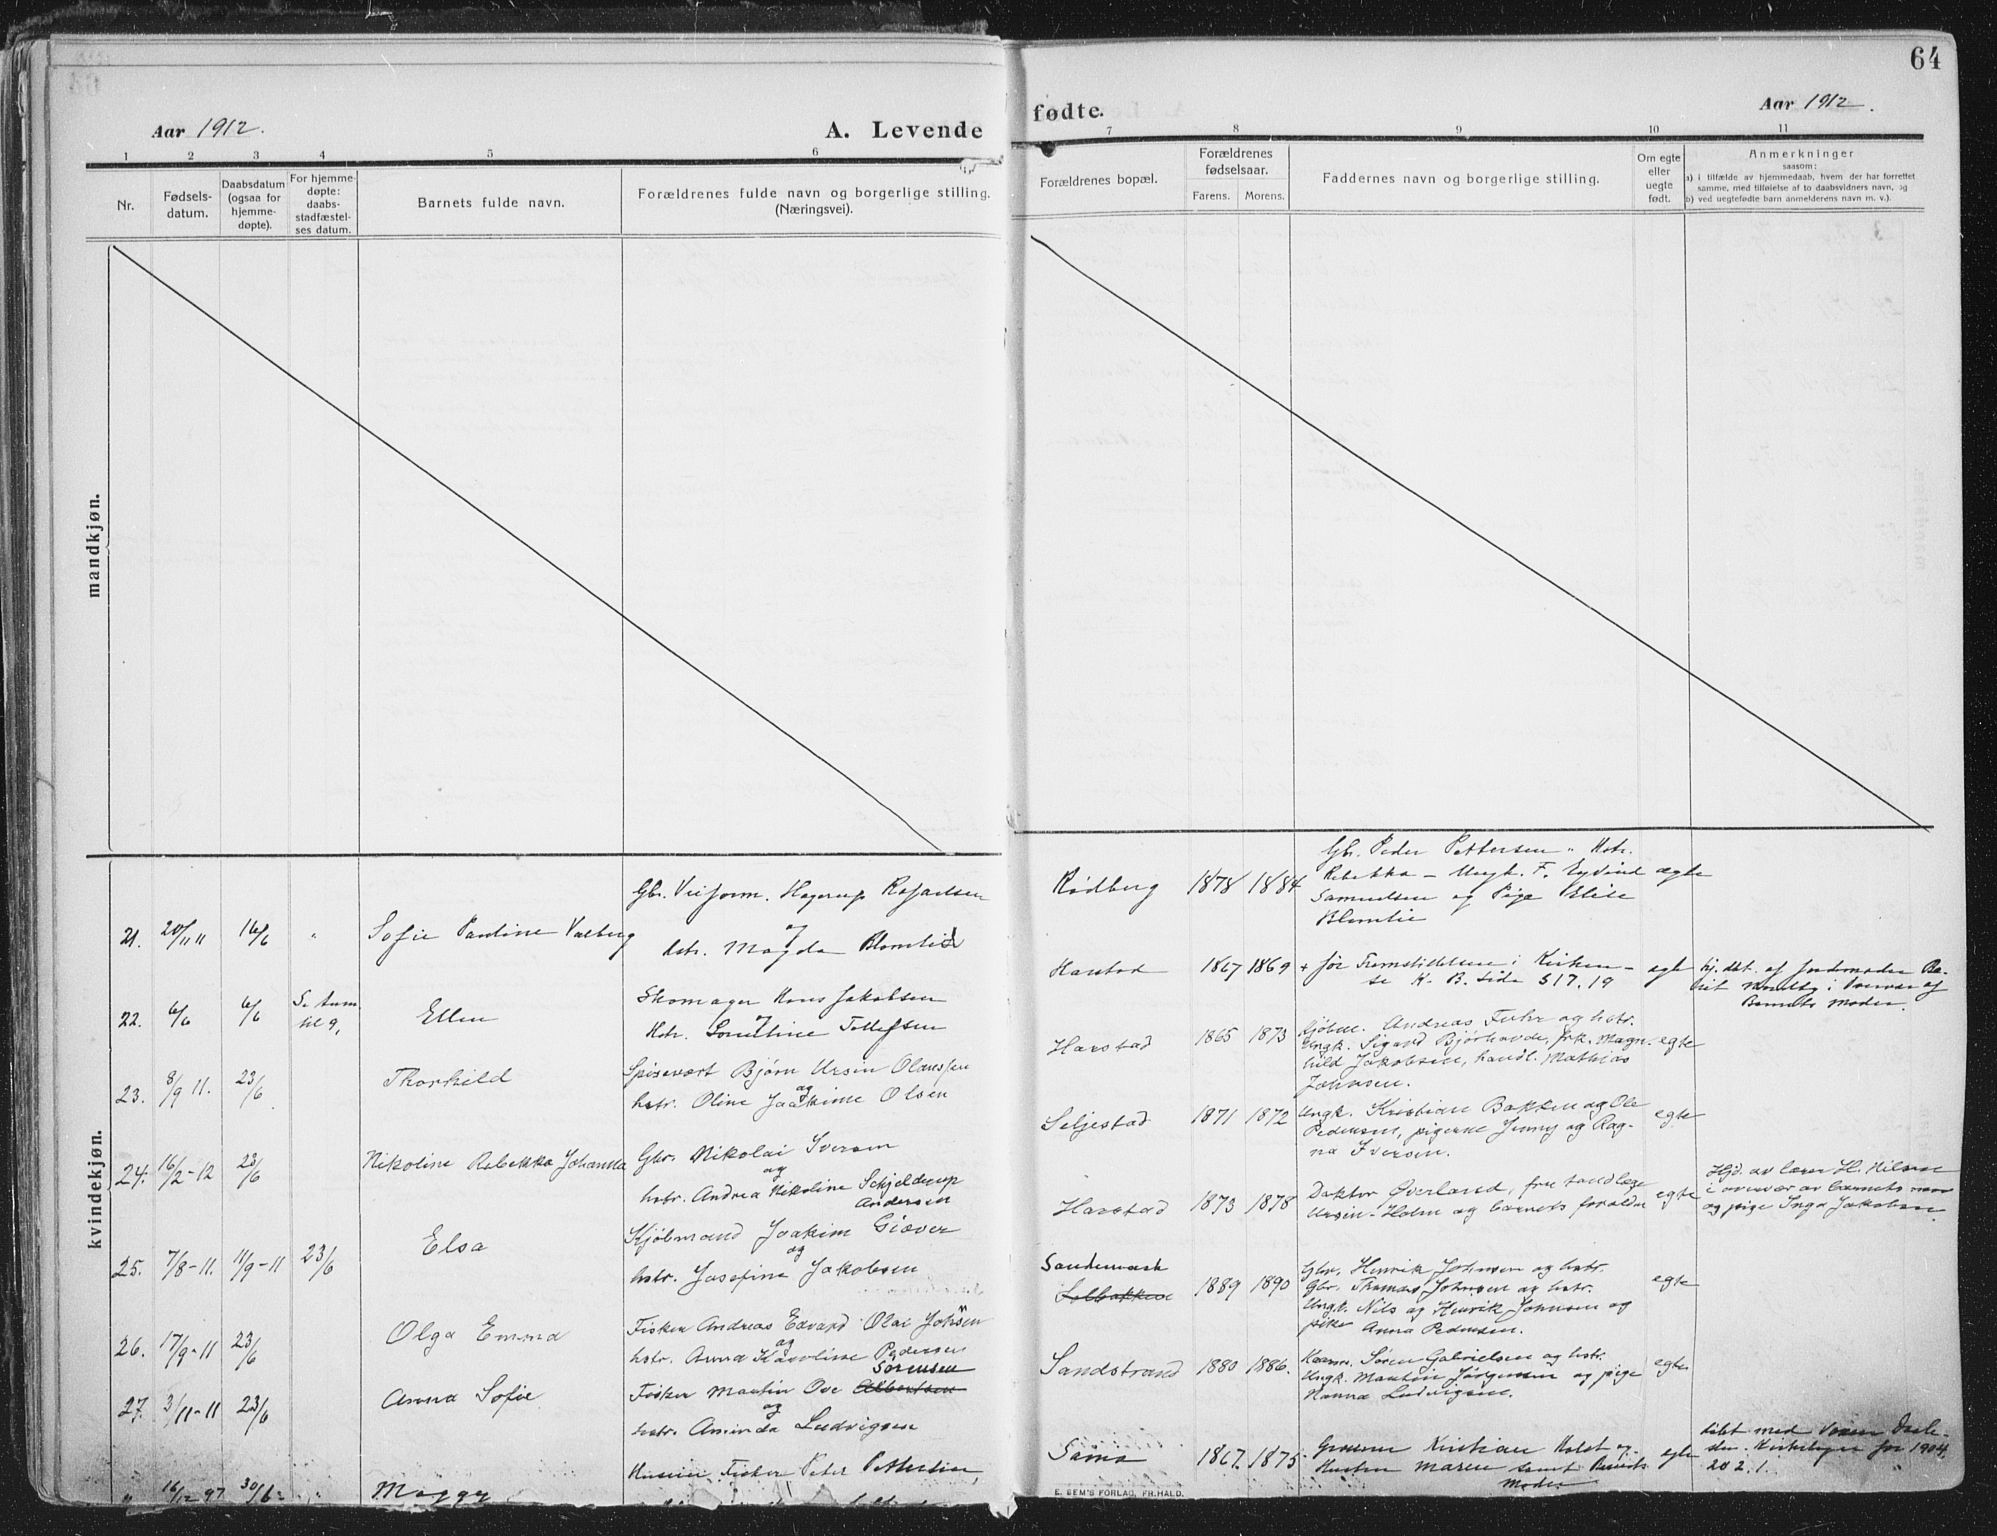 64
Aar 1912.
A. Levende
fødte.
Aar 1912.
1 2 3 4 5 6
7 8 9 10 11
Nr.
Fødsels-
datum.
Daabsdatum
(ogsaa for
hjemme-
døpte).
For hjemme-
døpte:
daabs-
stadfæstel-
ses datum.
Barnets fulde navn.
Forældrenes fulde navn og borgerlige stilling.
(Næringsvei).
Forældrenes bopæl.
Forældrenes
fødselsaar.
Farens. Morens.
Faddernes navn og borgerlige stilling.
Om egte
eller
uegte
født.
Anmerkninger
saasom:
a) i tilfælde av hjemmedaab, hvem der har forrettet
samme, med tilføielse af to daabsvidners navn, og
b) ved uegtefødte barn anmelderens navn m. v.).
mandkjøn.
kvindekjøn.
21. 20/11 11 16/6 " Sofie Pauline Valberg
Gbr. Hagerup Rafaelsen
og
hstr. Magda Blomlie
Rødberg 1878 1884
Gbr. Peder Pettersen " Hstr.
Rebekka – Ungk. F. Eyvind
Samuelsen og Pige Elise
Blomlie
ægte
22. 6/6 6/6 Ellen
Skomager Hans Jakobsen
og
Hstr. Tollefsen
Harstad 1867 1869
+ før Fremstillelsen i Kirken –
se K. B. side 517. 19
egte
hj. dbt. af jordemoder
i overvær af
Barnets Moder.
23. 8/9 11. 23/6 Thorhild
Spisevært Bjørn Ursin Olaussen
og
hstr. Oline Joakime Olsen
Harstad 1865 1873
Kjøbm. Andreas Fuhr og hstr.
Ungk. Sigurd Bjørhovde, frk. Magn-
hild Jakobsen, handl. Mathias
Johnsen.
egte
24. 16/2-12 23/6 Nikoline Rebekka Johanna
Gbr. Nikolai Iversen
og
hstr. Andrea Nikoline Schjelderup
Andersen
Seljestad 1871 1872
Ungk. Kristian Bakken og Ole
Pedersen, pigerne Jenny og Rag-
na Iversen.
egte
25. 7/8-11. 11/9-11 23/6 Elsa
Kjøbmand Joakim Giæver
og
hstr. Josefine Jakobsen
Harstad 1873 1878
Doktor Øverland, fru tandlæge
Ursin-Holm og barnets forældre
egte
Hjd. av lærer H. Nilsen
i overvær av barnets mor
og pige Inga Jakobsen.
26. 17/9-11 23/6 Olga Emma
Fisker Andreas Edvard Olai Johnsen
og
hstr. Anna Karoline Pedersen
Sandemark
Solbakken 1889 1890
Gbr. Henrik Johnsen og hstr.
Gbr. Thomas Johnsen og hstr.
Ungk. Nils og Henrik Johnsen og
pike Anna Pedersen.
egte
27. 3/11-11 23/6 Anna Sofie.
Sørensen
Fisker Martin Ove Albertsen
og
hstr. Aminda Ludvigsen
Sandstrand 1880 1886.
Kaarm. Søren Gabrielsen og hstr.
Ungk. Martin Jørgensen og pige
Hanna Ludvigsen.
egte
" 16/12 97 30/6 " Maggy
Fisker Peter Pettersen,
Sama 1867. 1875.
Kristian Holst og
Hustru Maren samt Barnets
Moder
egte
døbt med
for 1904,
20 2. 1.
E. SEM'S FORLAG, FR.HALD.